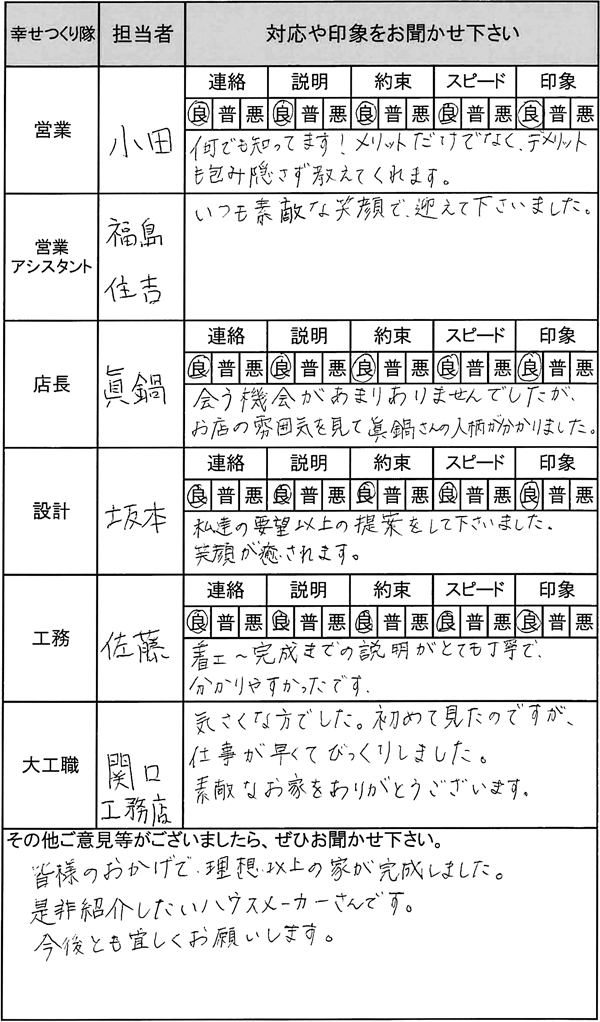 幸せつくり隊 担当者 対応や印象をお聞かせ下さい
営業 小田
連絡 説明 約束 スピード 印象
良 普 悪 良 普 悪 良 普 悪 良 普 悪 良 普 悪
何でも知ってます!メリットだけでなく、デメリット
も包み隠さず教えてくれます。
営業
アシスタント
福島
住吉
いつも素敵な笑顔で、迎えて下さいました。
店長 眞鍋
連絡 説明 約束 スピード 印象
良 普 悪 良 普 悪 良 普 悪 良 普 悪 良 普 悪
会う機会があまりありませんでしたが、
お店の雰囲気を見て眞鍋さんの人柄が分かりました。
設計 坂本
連絡 説明 約束 スピード 印象
良 普 悪 良 普 悪 良 普 悪 良 普 悪 良 普 悪
私達の要望以上の提案をして下さいました。
笑顔が癒されます。
工務 佐藤
連絡 説明 約束 スピード 印象
良 普 悪 良 普 悪 良 普 悪 良 普 悪 良 普 悪
着工~完成までの説明がとても丁寧で、
分かりやすかったです。
大工職
関口
工務店
気さくな方でした。初めて見たのですが、
仕事が早くてびっくりしました。
素敵なお家をありがとうございます。
その他ご意見等がございましたら、ぜひお聞かせ下さい。
皆様のおかげで、理想以上の家が完成しました。
是非紹介したいハウスメーカーさんです。
今後とも宜しくお願いします。